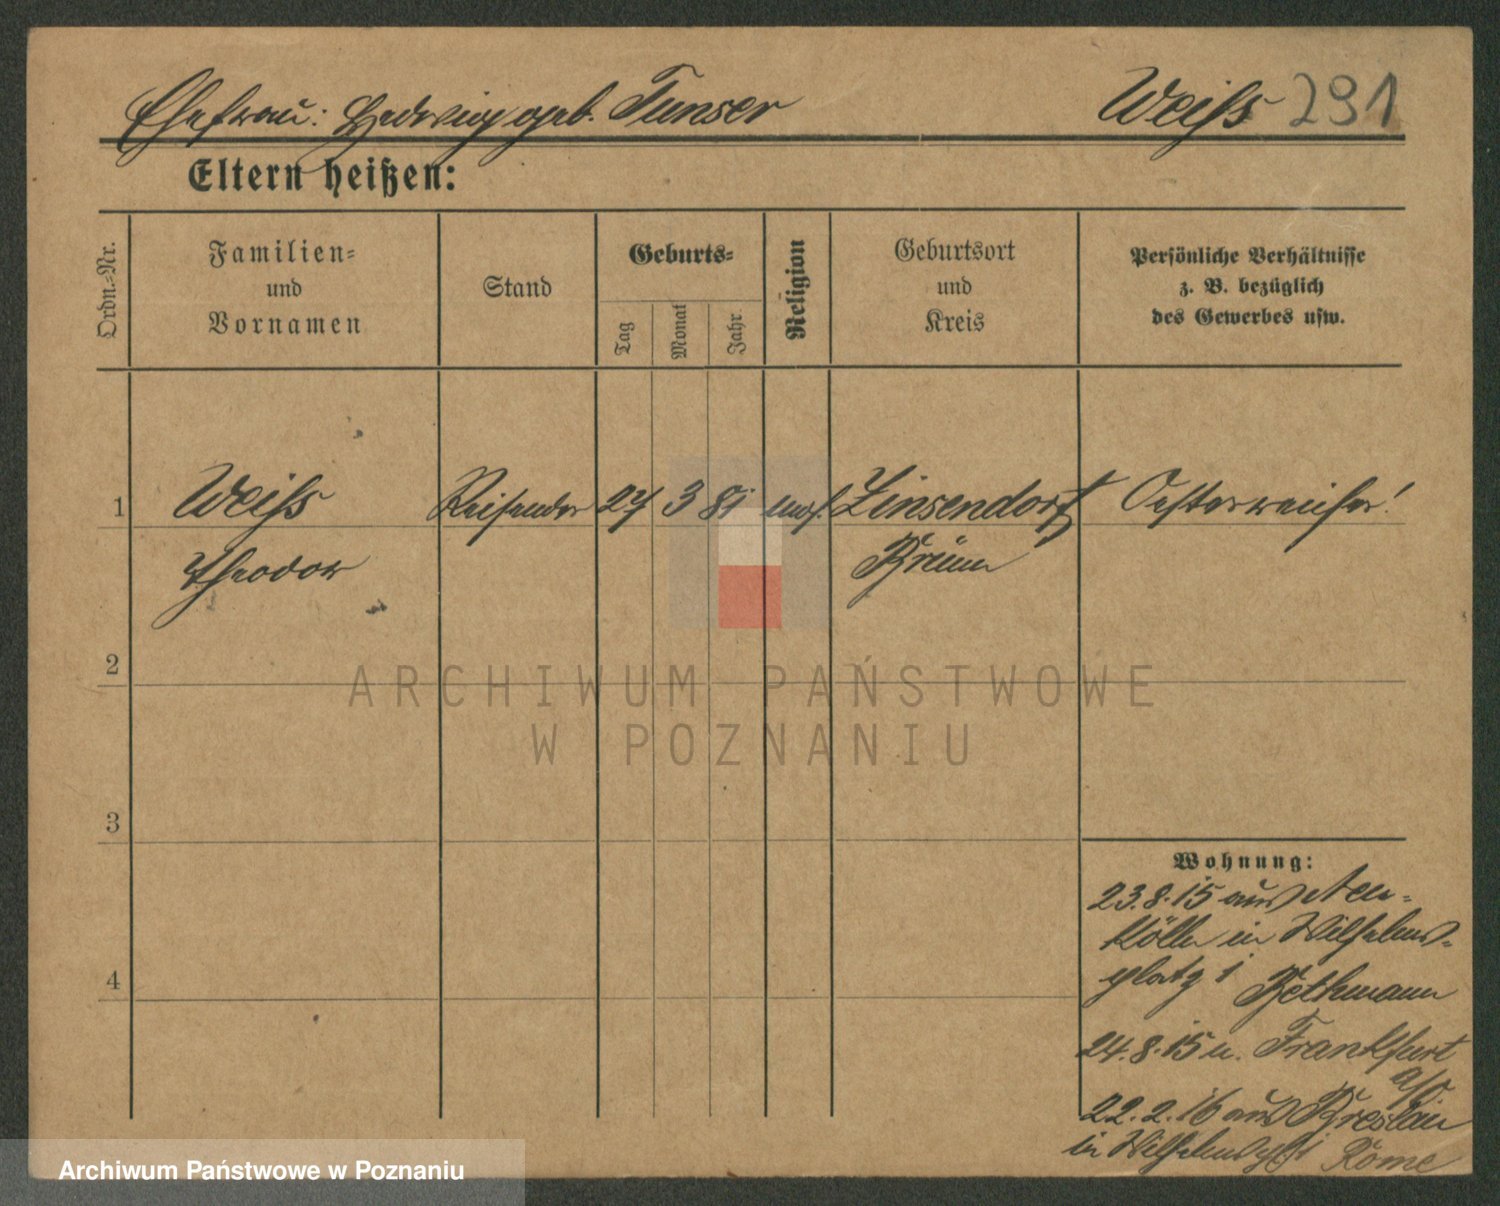 Ehefrau: Hedwig geb. Tunser Weiſs 291
Eltern heißen:
Ordn.=Nr.
Familien=
und
Vornamen
Stand
Geburts=
Tag
Monat
Jahr
Religion
Geburtsort
und
Kreis
Persönliche Verhältnisse
z. B. bezüglich
des Gewerbes usw.
1 Weiſs Reisender 27 3 81 mos. Zinsendorf Oesterreicher!
Theodor Brünn
2
ARCHIWUM PAŃSTWOWE
W POZNANIU
3
4
Wohnung:
23.8.15 aus Neu-
kölln in Wilhelms-
platz 1 Bethmann
24.8.15 n. Frankfurt
a/O
22.2.16 aus Breslau
in Wilhelmspl 1 Rome
Archiwum Państwowe w Poznaniu